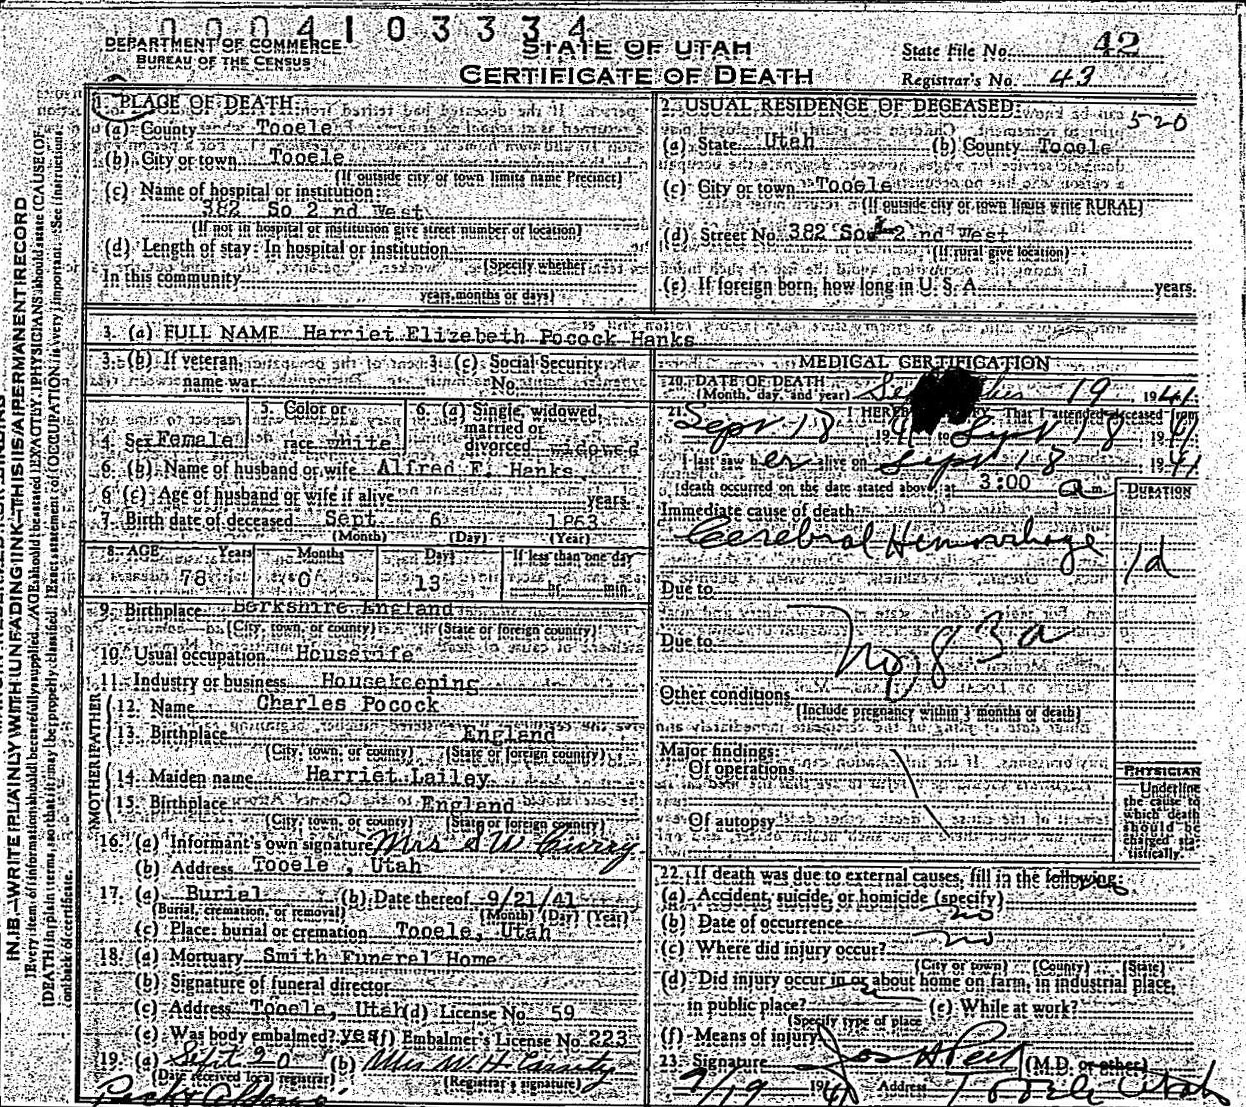 0004103334
DEPARTMENT OF COMMERCE
BUREAU OF THE CENSUS
STATE OF UTAH
CERTIFICATE OF DEATH
State File No. 42
Registrar's No. 43
1. PLACE OF DEATH:
(a) County Tooele
(b) City or town Tooele
(If outside city or town limits name Precinct)
(c) Name of hospital or institution:
382 So 2 nd West
(If not in hospital or institution give street number or location)
(d) Length of stay: In hospital or institution
(Specify whether
In this community
years, months or days)
2. USUAL RESIDENCE OF DECEASED:
520
(a) State Utah (b) County Tooele
(c) City or town Tooele
(If outside city or town limits write RURAL)
(d) Street No. 382 So 2 nd West
(If rural give location)
(e) If foreign born, how long in U. S. A. years.
3. (a) FULL NAME Harriet Elizebeth Pocock Hanks
3. (b) If veteran, name war
3. (c) Social Security No.
4. Sex Female
5. Color or race White
6. (a) Single, widowed, married or divorced widowed
6. (b) Name of husband or wife Alfred F. Hanks
6 (c) Age of husband or wife if alive years.
7. Birth date of deceased Sept. 6 1863
(Month) (Day) (Year)
8. AGE Years Months Days If less than one day
78 0 13 hr. min.
9. Birthplace Berkshire England
(City, town, or county) (State or foreign country)
10. Usual occupation Housewife
11. Industry or business Housekeeping
FATHER
12. Name Charles Pocock
13. Birthplace England
(City, town, or county) (State or foreign country)
MOTHER
14. Maiden name Harriet Lailey
15. Birthplace England
(City, town, or county) (State or foreign country)
16. (a) Informant's own signature Mrs S W Curry
(b) Address Tooele, Utah
17. (a) Burial (b) Date thereof 9/21/41
(Burial, cremation, or removal) (Month) (Day) (Year)
(c) Place: burial or cremation Tooele, Utah
18. (a) Mortuary Smith Funeral Home
(b) Signature of funeral director
(c) Address Tooele, Utah (d) License No. 59
(e) Was body embalmed? yes (f) Embalmer's License No. 223
19. (a) Sept 20 (b) Mrs W. H. Cassity
(Date received local registrar) (Registrar's signature)
MEDICAL CERTIFICATION
20. DATE OF DEATH
(Month, day, and year) 19 1941
21. I HEREBY That I attended deceased from
Sept 18 1941 to Sept 18 1941
I last saw her alive on Sept 18 1941
death occurred on the date stated above at 3:00 a m.
DURATION
Immediate cause of death
Cerebral Hemorrhage 1d
Due to
Due to
83a
Other conditions
(Include pregnancy within 3 months of death)
Major findings:
Of operations
Of autopsy
PHYSICIAN
Underline
the cause to
which death
should be
charged sta-
tistically.
22. If death was due to external causes, fill in the following:
(a) Accident, suicide, or homicide (specify) no
(b) Date of occurrence no
(c) Where did injury occur?
(City or town) (County) (State)
(d) Did injury occur in or about home on farm, in industrial place,
in public place? (e) While at work?
(Specify type of place
(f) Means of injury
23. Signature Jos H Peck (M.D. or other)
9/19 1941 Address Tooele Utah
N.B.—WRITE PLAINLY WITH UNFADING INK—THIS IS A PERMANENT RECORD
Every item of information should be carefully supplied. AGE should be stated EXACTLY. PHYSICIANS should state CAUSE OF
DEATH in plain terms, so that it may be properly classified. Exact statement of OCCUPATION is very important. See instructions
on back of certificate.